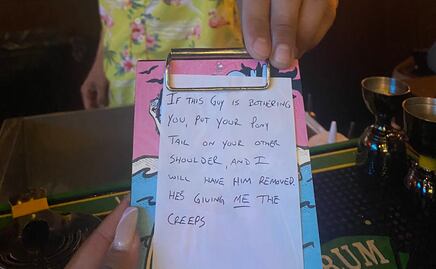 IF THIS GUY IS BOTHERING
YOU, PUT YOUR PONY
TAIL ON YOUR OTHER
SHOULDER, AND I
WILL HAVE HIM REMOVED.
HE'S GIVING ME THE
CREEPS
RUM